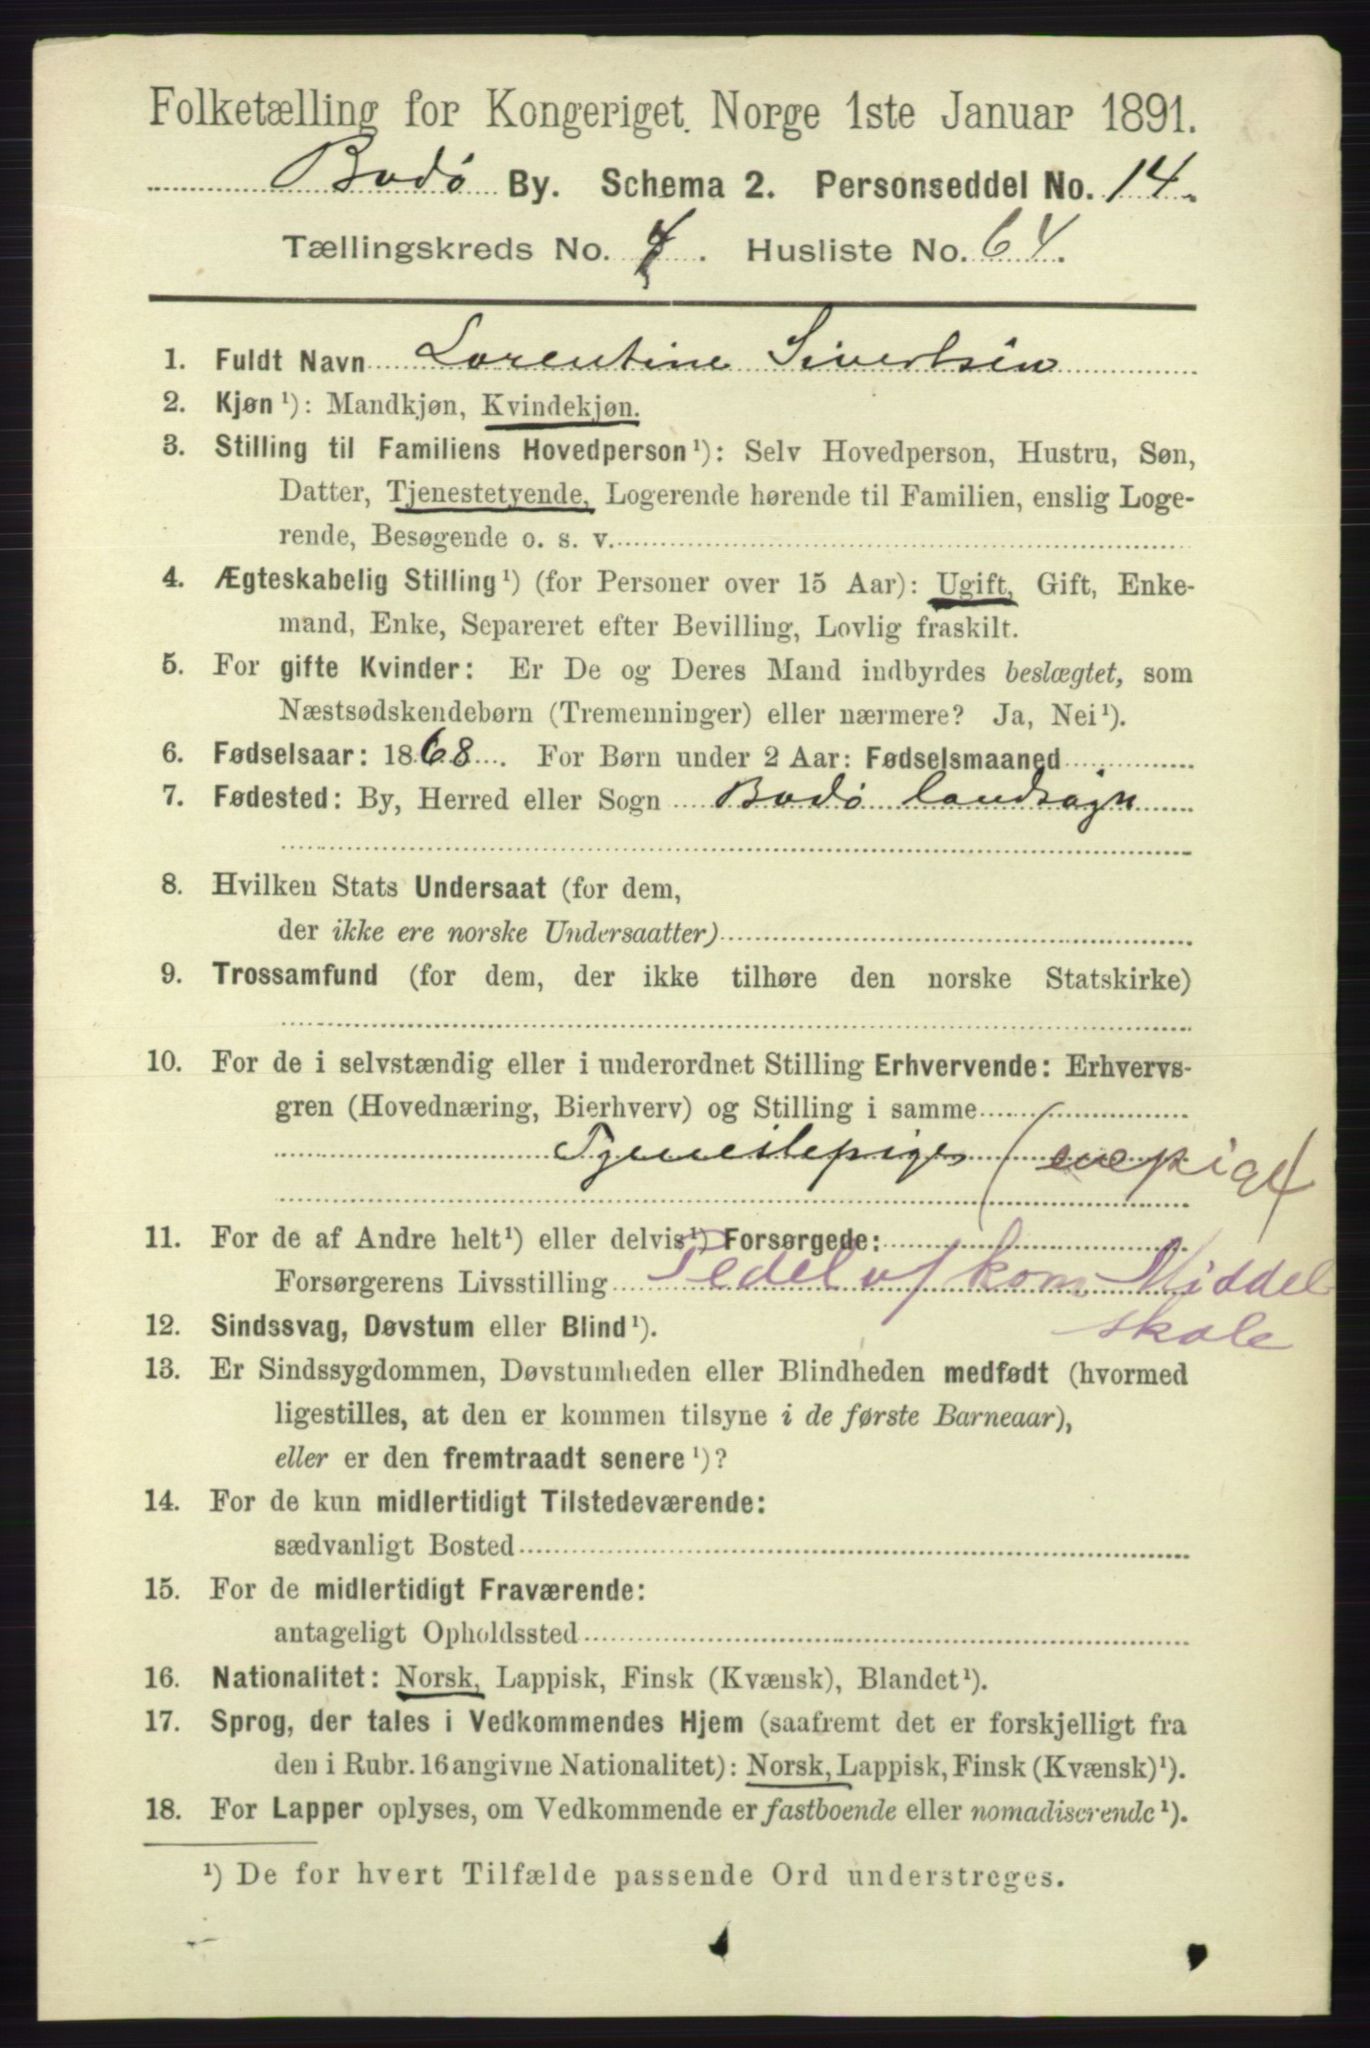 Folketælling for Kongeriget Norge 1ste Januar 1891.
Bodø By. Schema 2. Personseddel No. 14.
Tællingskreds No. 7. Husliste No. 64.
1. Fuldt Navn Lorentine Sivertsen
2. Kjøn¹): Mandkjøn, Kvindekjøn.
3. Stilling til Familiens Hovedperson¹): Selv Hovedperson, Hustru, Søn,
Datter, Tjenestetyende, Logerende hørende til Familien, enslig Loge-
rende, Besøgende o. s. v.
4. Ægteskabelig Stilling¹) (for Personer over 15 Aar): Ugift, Gift, Enke-
mand, Enke, Separeret efter Bevilling, Lovlig fraskilt.
5. For gifte Kvinder: Er De og Deres Mand indbyrdes beslægtet, som
Næstsødskendebørn (Tremenninger) eller nærmere? Ja, Nei¹).
6. Fødselsaar: 1868. For Børn under 2 Aar: Fødselsmaaned
7. Fødested: By, Herred eller Sogn Bodø landsogn
8. Hvilken Stats Undersaat (for dem,
der ikke ere norske Undersaatter)
9. Trossamfund (for dem, der ikke tilhøre den norske Statskirke)
10. For de i selvstændig eller i underordnet Stilling Erhvervende: Erhvervs-
gren (Hovednæring, Bierhverv) og Stilling i samme
Tjenestepige (enepige)
11. For de af Andre helt¹) eller delvis¹) Forsørgede:
Forsørgerens Livsstilling Pedel v/ kom Middel
skole
12. Sindssvag, Døvstum eller Blind¹).
13. Er Sindssygdommen, Døvstumheden eller Blindheden medfødt (hvormed
ligestilles, at den er kommen tilsyne i de første Barneaar),
eller er den fremtraadt senere¹)?
14. For de kun midlertidigt Tilstedeværende:
sædvanligt Bosted
15. For de midlertidigt Fraværende:
antageligt Opholdssted
16. Nationalitet: Norsk, Lappisk, Finsk (Kvænsk), Blandet¹).
17. Sprog, der tales i Vedkommendes Hjem (saafremt det er forskjelligt fra
den i Rubr. 16 angivne Nationalitet): Norsk, Lappisk, Finsk (Kvænsk)¹).
18. For Lapper oplyses, om Vedkommende er fastboende eller nomadiserende¹).
¹) De for hvert Tilfælde passende Ord understreges.